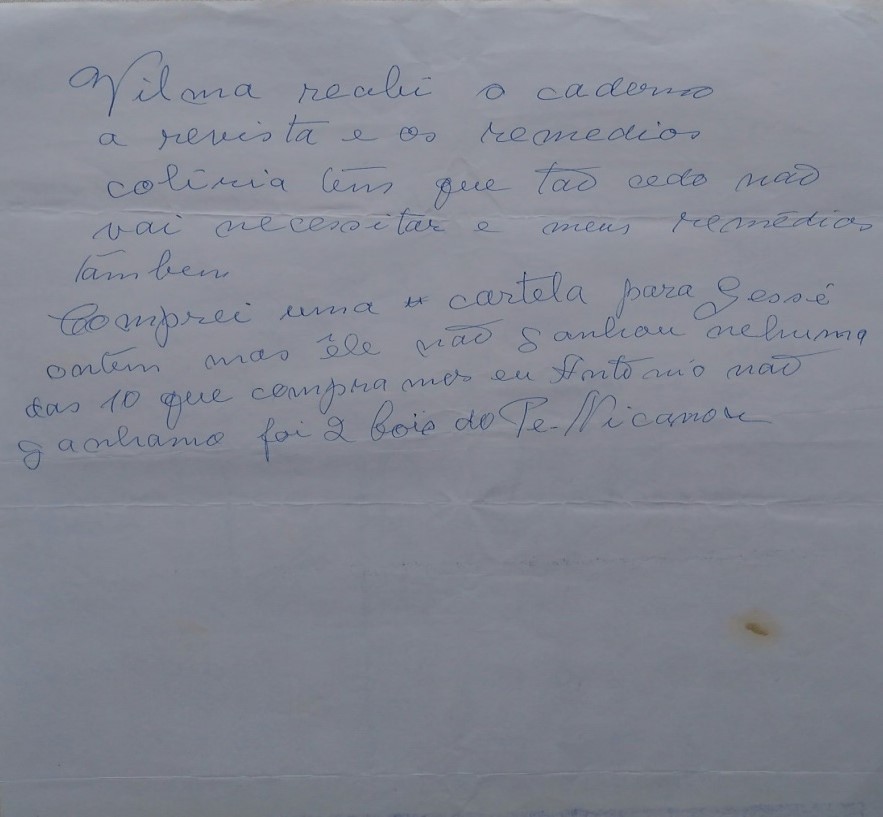 Vilma recebi o caderno
a revista e os remedios
colíria têm que tão cedo não
vai necessitar e meus remédios
támbem
Comprei uma cartela para Gessé
ontém mas êle não ganhou nehuma
das 10 que compramos eu Antônio não
ganhamo foi 2 bois do Pe. Nicanor